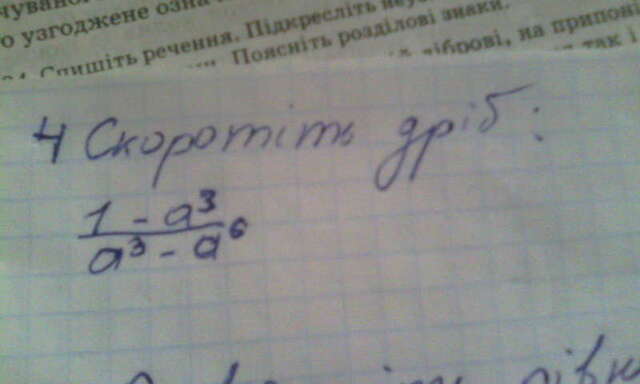 о узгоджене озна
Спишіть речення. Підкресліть
Поясніть розділові знаки.
діброві, на
так і
4 Скоротіть дріб:
1 - a³
a³ - a⁶